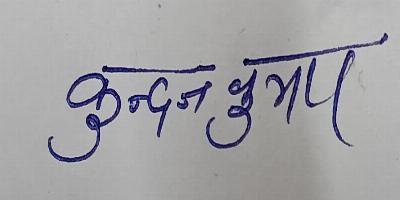 कुन्दन कुमार